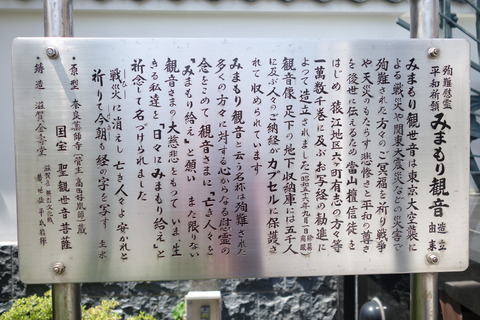 殉難慰霊
平和祈願
みまもり観音
造立
由来
みまもり観世音は東京大空襲に
よる戦災や関東大震災などの災害で
殉難された方々のご冥福を祈り戦争
や天災のもたらす悲惨さと平和の尊さ
を後世に伝えるため当山檀信徒を
はじめ 猿江地区六ヶ町有志の方々等
一萬数千巻に及ぶお写経の勧進に
よって造立されました
観音像足下の地下収納庫には五千人
に及ぶ人々のご納経がカプセルに保護さ
れて収められています
みまもり観音と云う名称は殉難された
多くの方々に対する心からなる慰霊の
念をこめて 観音さまに 亡き人々を
“みまもり給え”と願い また限りない
観音さまの大慈悲をもっていま 生
きる私達を“日々にみまもり給え”と
祈念して名づけられました
戦災に消えし亡き人々よ安かれと
祈りて今朝も経の字を写す
・原型 奈良薬師寺
国宝 聖観世音菩薩
・鋳造